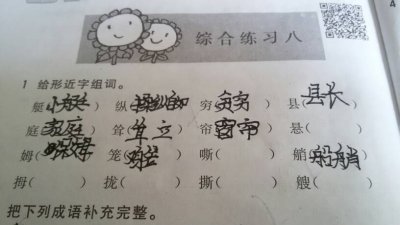 综合练习八
1 给形近字组词。
艇(小艇) 纵( ) 穷( ) 县(县长)
庭(家庭) 耸(耸立) 帘(窗帘) 悬( )
姆( ) 笼( ) 嘶( ) 艄(船艄)
拇( ) 拢( ) 撕( ) 艘( )
把下列成语补充完整。